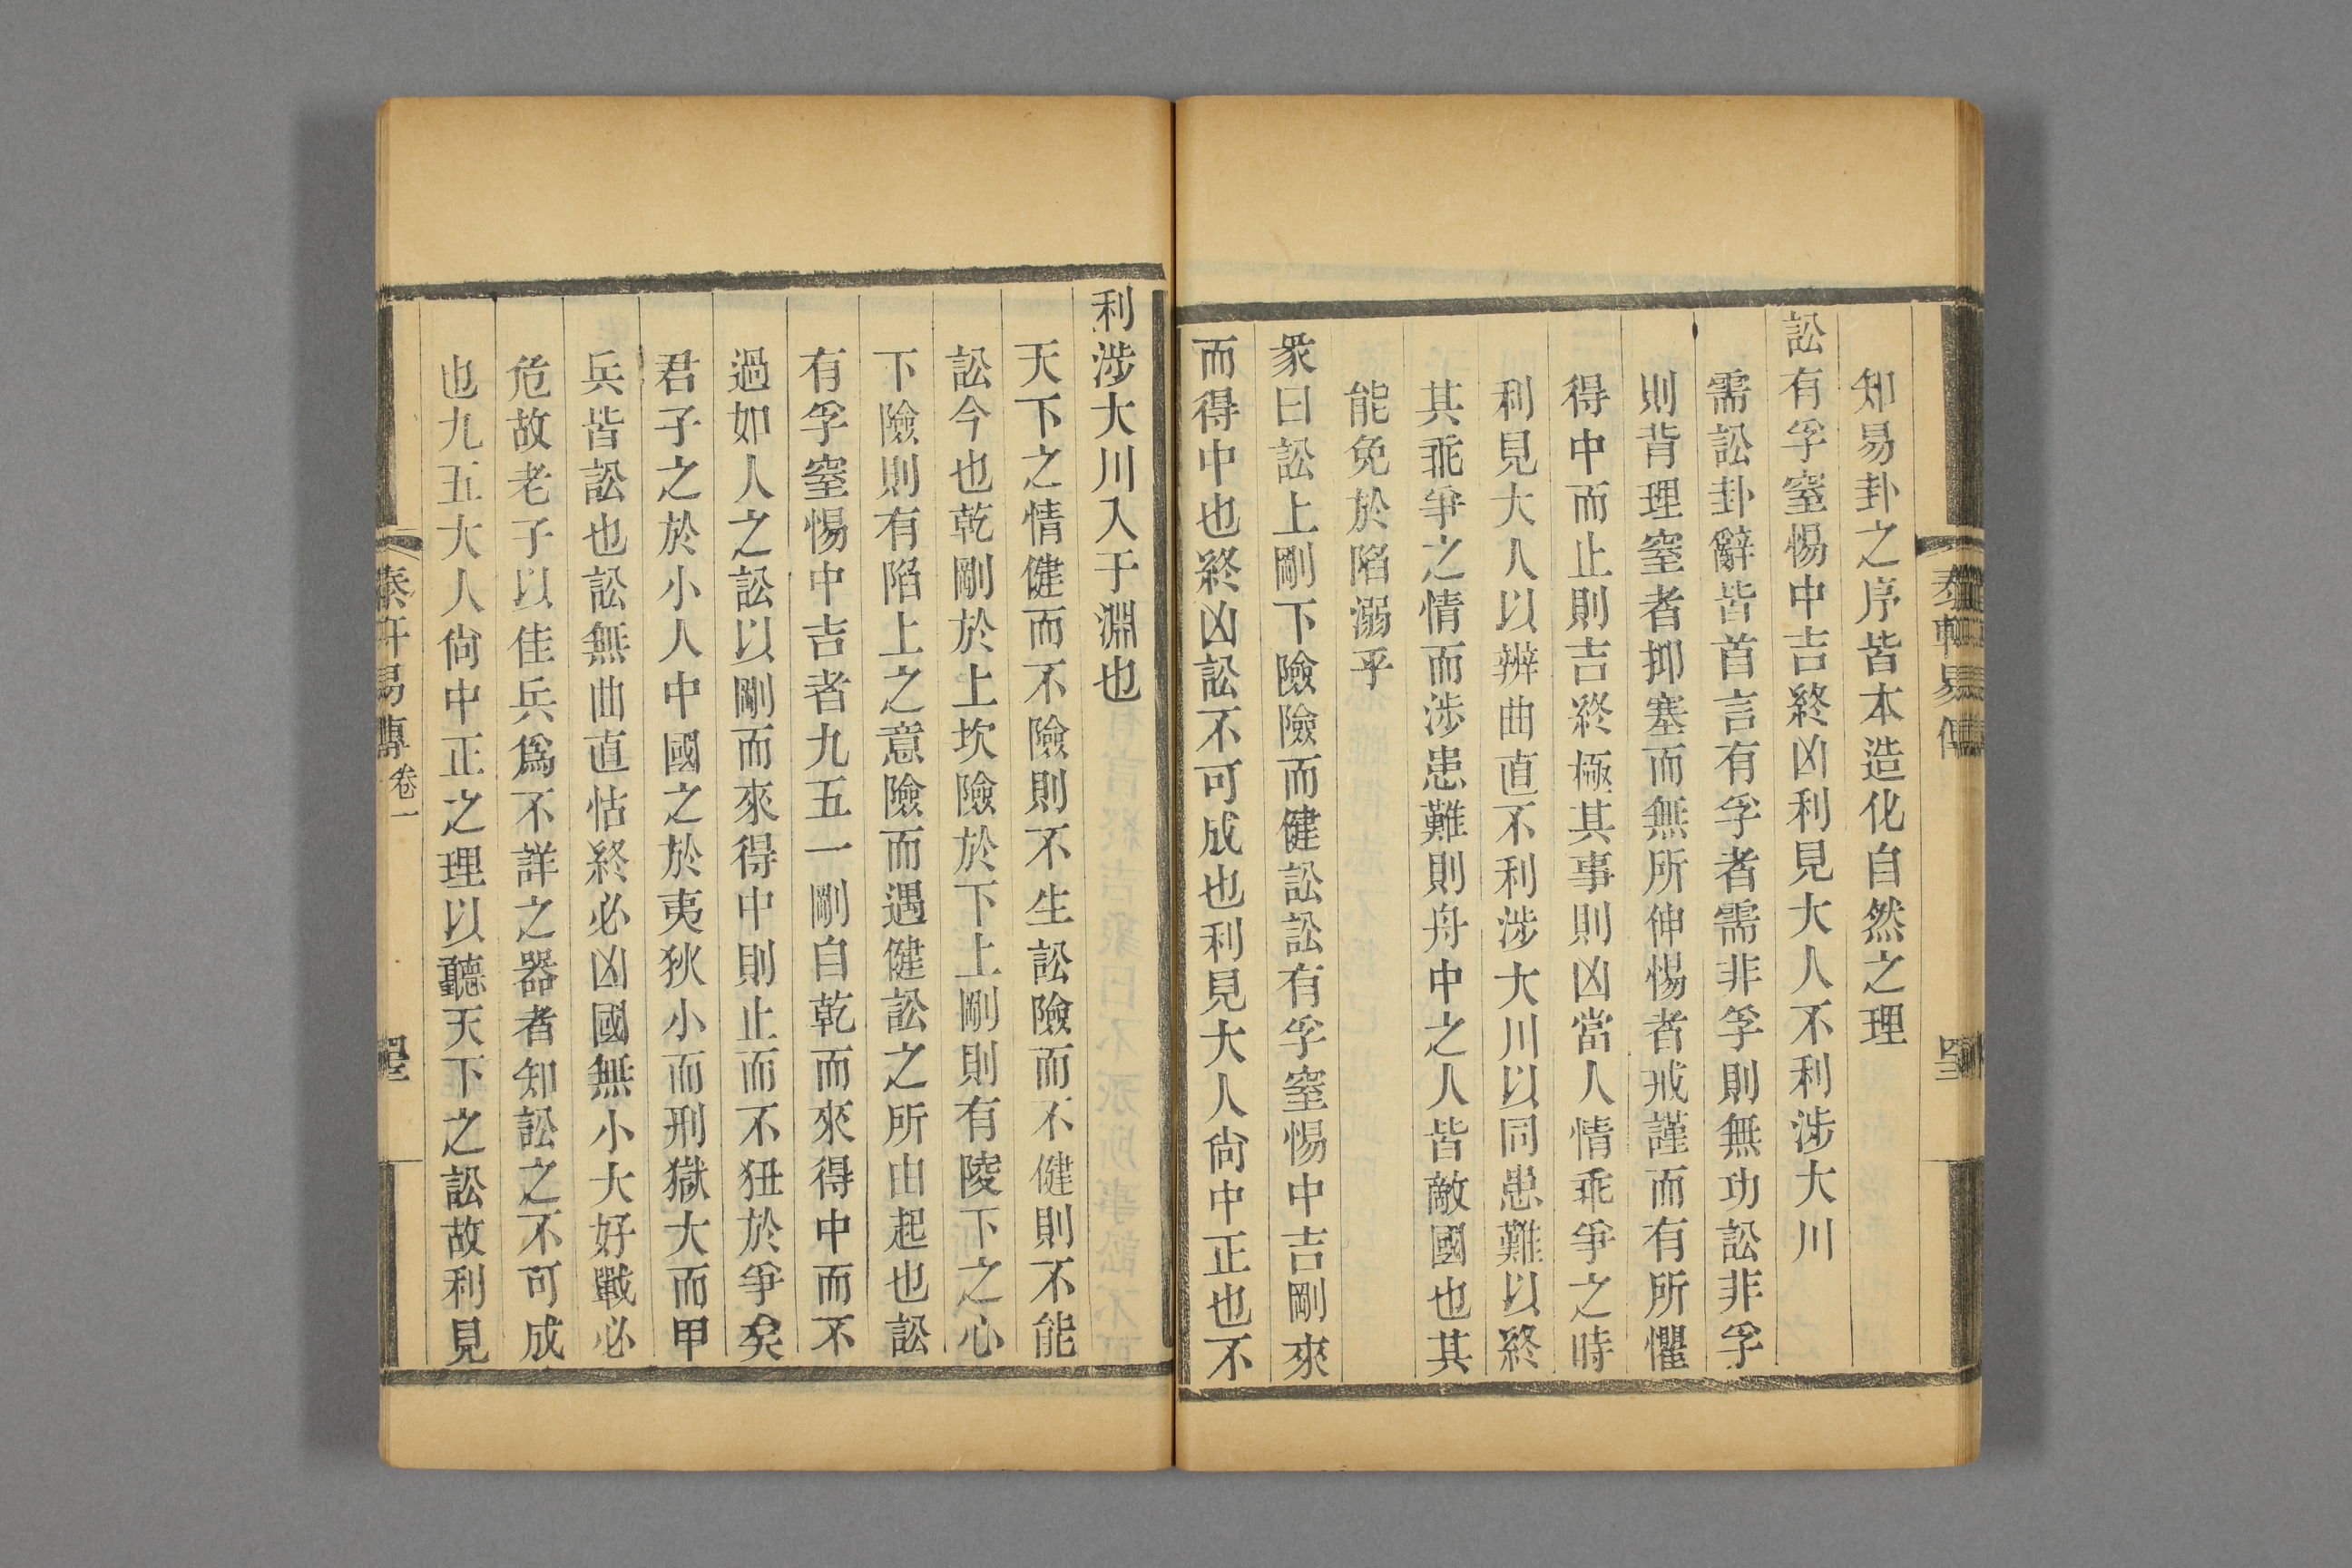 知易卦之序皆本造化自然之理
訟有孚窒惕中吉終凶利見大人不利涉大川
需訟卦辭皆首言有孚者需非孚則無功訟非孚
則背理窒者抑塞而無所伸惕者戒謹而有所懼
得中而止則吉終極其事則凶當人情乖爭之時
利見大人以辨曲直不利涉大川以同患難以終
其乖爭之情而涉患難則舟中之人皆敵國也其
能免於陷溺乎
彖曰訟上剛下險險而健訟訟有孚窒惕中吉剛來
而得中也終凶訟不可成也利見大人尙中正也不
利涉大川入于淵也
天下之情健而不險則不生訟險而不健則不能
訟今也乾剛於上坎險於下上剛則有陵下之心
下險則有陷上之意險而遇健訟之所由起也訟
有孚窒惕中吉者九五一剛自乾而來得中而不
過如人之訟以剛而來得中則止而不狃於爭矣
君子之於小人中國之於夷狄小而刑獄大而甲
兵皆訟也訟無曲直怙終必凶國無小大好戰必
危故老子以佳兵爲不詳之器者知訟之不可成
也九五大人尙中正之理以聽天下之訟故利見
易傳 卷一